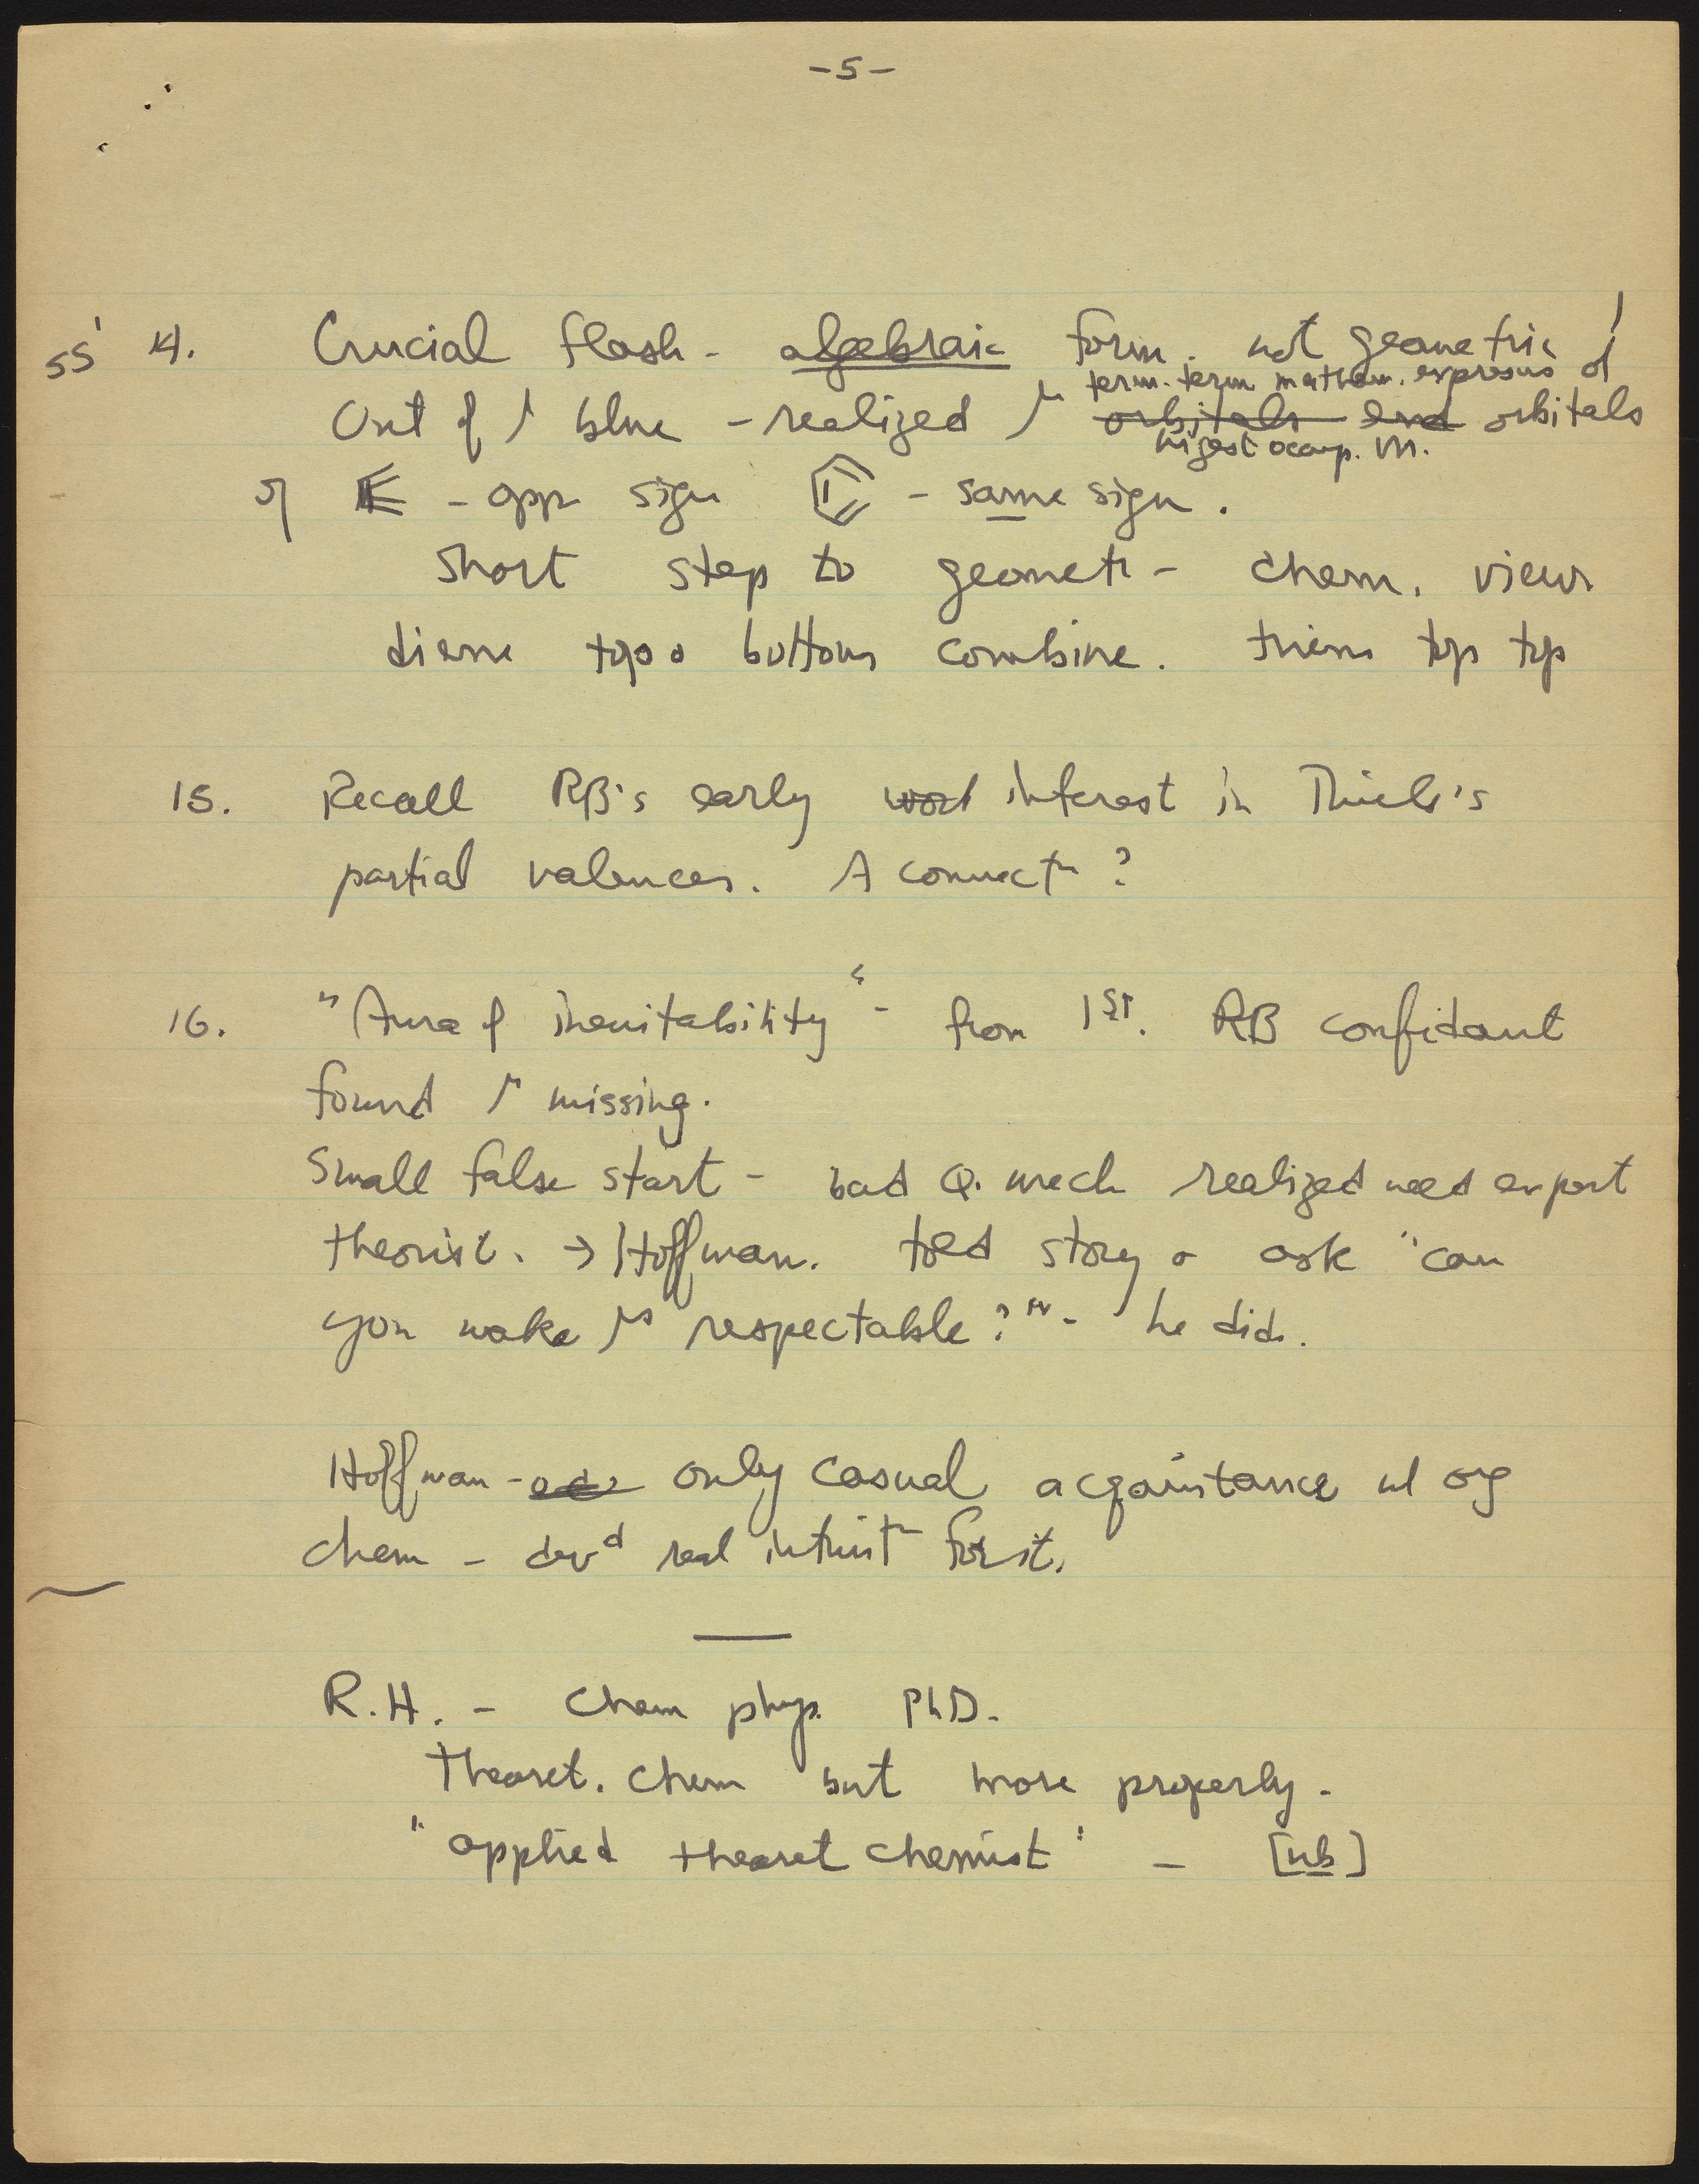 -5-
55' 14. Crucial flash - algebraic form. not geometric!
term. term mathem. expresns of
Out of blue - realized orbitals end orbitals
higest occup. M.
of - opp sign - same sign.
Short step to geometr - chem. view
diene top bottom combine. triene top top
15. Recall RB's early work interest in Thiele's
partial valences. A connectn ?
16. "Aura of inevitability" - from 1st. RB confidant
found missing.
Small false start - bad Q. mech realized need expert
theorist. → Hoffman. told story & ask "can
you make respectable?" - he did.
Hoffman - only casual acqaintance w/ org
chem - devd real intuitn for it.
R.H. - Chem phys. PhD.
Theoret. Chem but more properly -
"applied theoret chemist" - [nb]